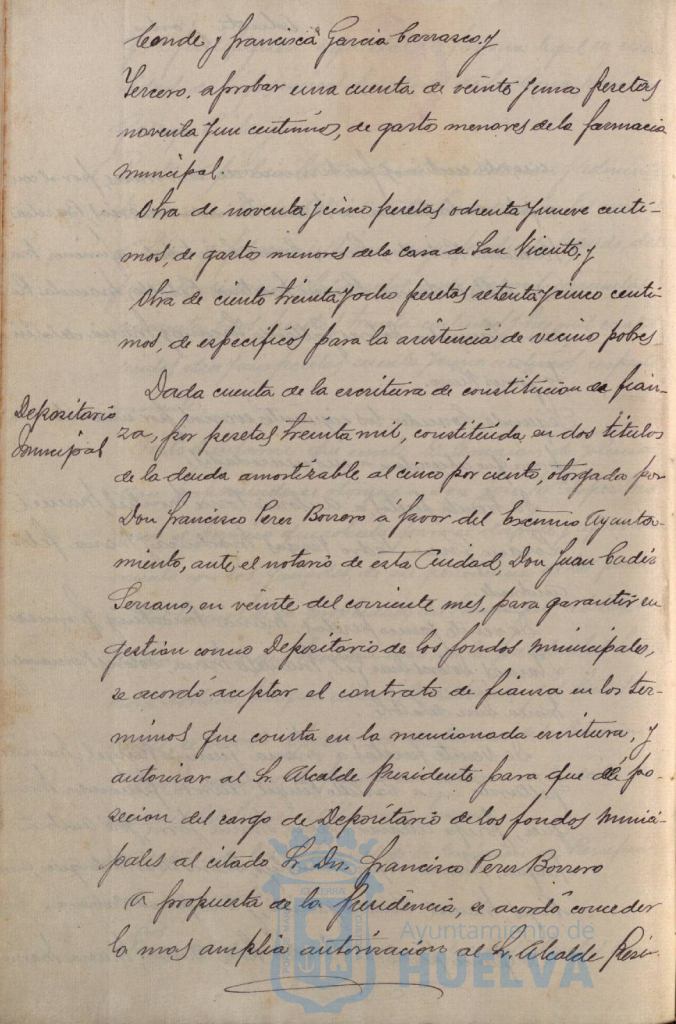 Conde y Francisca Garcia Carrasco, y
Tercero, aprobar una cuenta de veinte y una pesetas
noventa y un centimos, de gasto menores de la farmacia
municipal.
Otra de noventa y cinco pesetas ochenta y nueve centi-
mos, de gasto menores de la casa de San Vicente, y
Otra de ciento treinta y ocho pesetas setenta y cinco centi-
mos, de especificos para la asistencia de vecino pobres
Dada cuenta de la escritura de constitucion de fian-
Depositario
municipal
za, por pesetas treinta mil, constituida en dos titulos
de la deuda amortizable al cinco por ciento, otorgada por
Don Francisco Perez Borrero á favor del Excmo Ayunta-
miento, ante el notario de esta Ciudad, Don Juan Cadiz
Serrano, en veinte del corriente mes, para garantir su
gestion como Depositario de los fondos municipales,
se acordó aceptar el contrato de fianza en los ter-
minos que consta en la mencionada escritura, y
autorizar al Sr. Alcalde Presidente para que dé po-
secion del cargo de Depositario de los fondos munici-
pales al citado Sr. Dn. Francisco Perez Borrero
A propuesta de la Presidencia, se acordó conceder
la mas amplia autorización al Sr. Alcalde Presi-
Ayuntamiento de
HUELVA